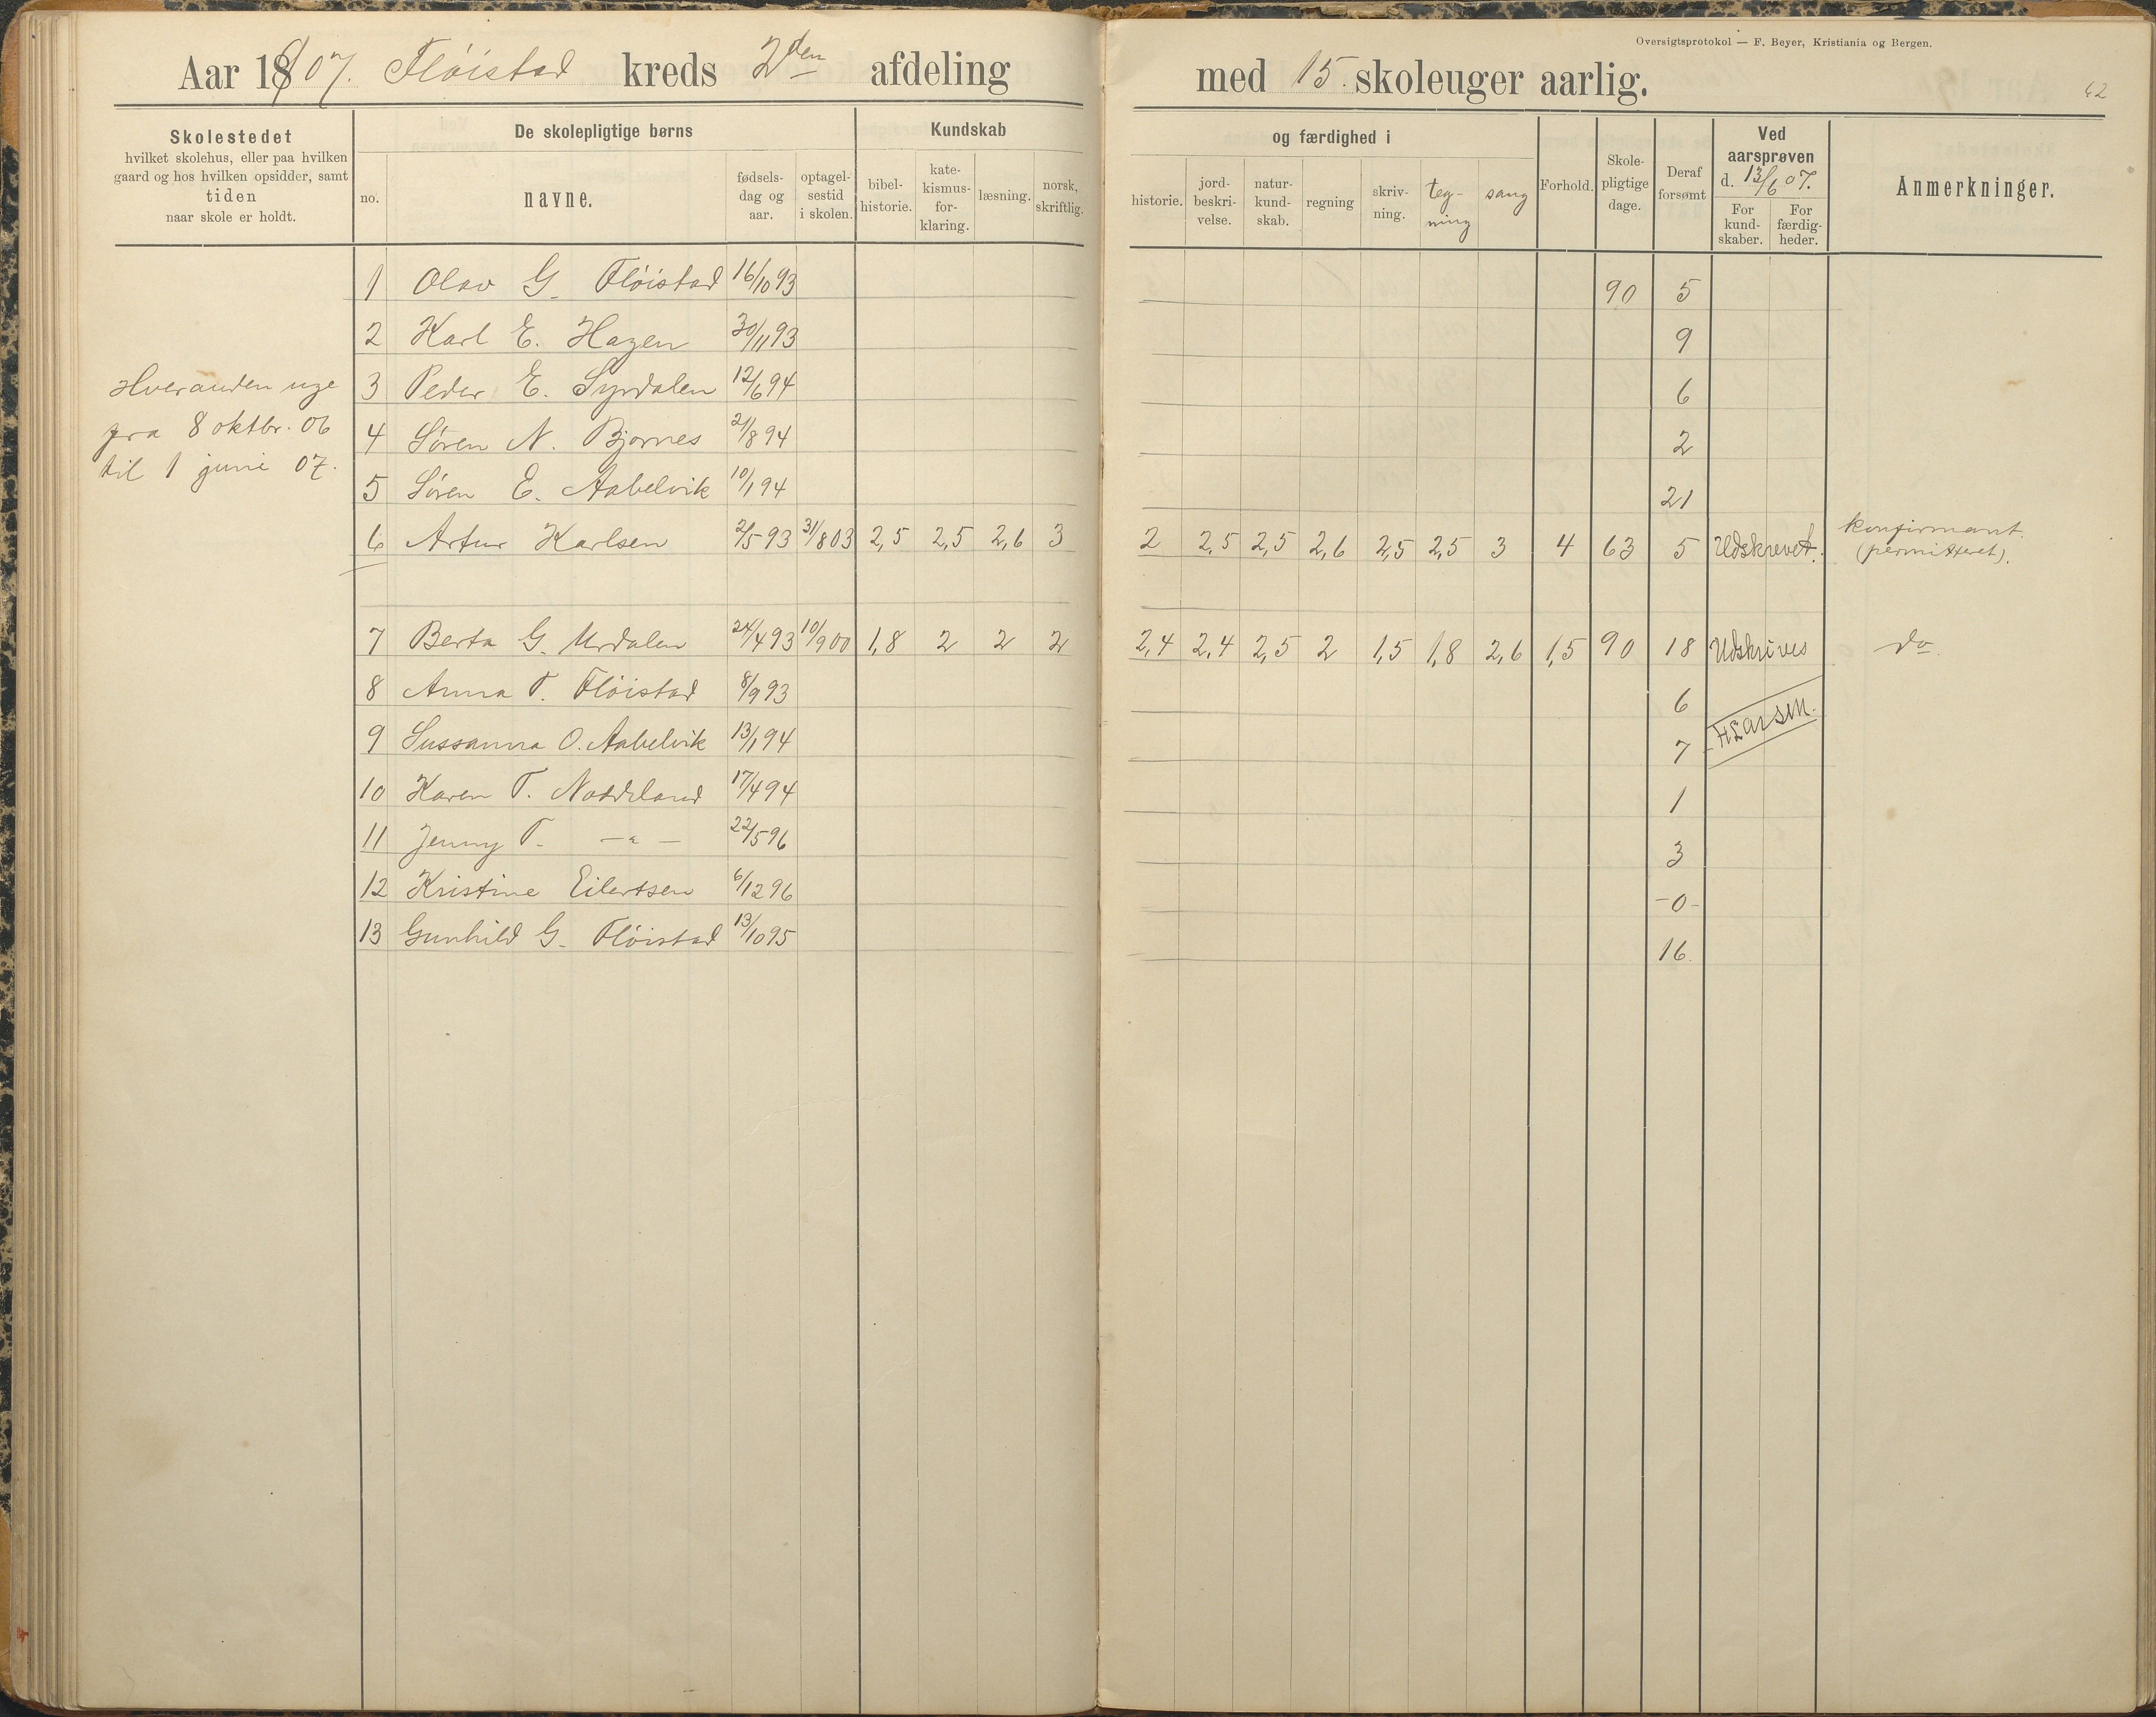 Oversigtsprotokol — F. Beyer, Kristiania og Bergen.
Aar 1907. Fløistad kreds 2den afdeling med 15. skoleuger aarlig.
62
Skolestedet
hvilket skolehus, eller paa hvilken
gaard og hos hvilken opsidder, samt
tiden
naar skole er holdt.
De skolepligtige børns
no.
navne.
fødsels-
dag og
aar.
optagel-
sestid
i skolen.
Kundskab
bibel-
historie.
kate-
kismus-
for-
klaring.
læsning.
norsk,
skriftlig.
og færdighed i
historie.
jord-
beskri-
velse.
natur-
kund-
skab.
regning
skriv-
ning.
teg-
ning
sang
Forhold.
Skole-
pligtige
dage.
Deraf
forsømt
Ved
aarsprøven
d. 13/6 07.
For
kund-
skaber.
For
færdig-
heder.
Anmerkninger.
Hveranden uge
fra 8 oktbr. 06
til 1 juni 07.
1 Olav G. Fløistad 16/10 93 90 5
2 Karl E. Hagen 30/11 93 9
3 Peder E. Syrdalen 12/6 94 6
4 Søren N. Bjornes 21/8 94 2
5 Søren E. Aabelvik 10/1 94 21
6 Artur Karlsen 2/5 93 31/8 03 2,5 2,5 2,6 3 2 2,5 2,5 2,6 2,5 2,5 3 4 63 5 Udskrevet. konfirmant.
(permitteret).
7 Berta G. Urdalen 24/4 93 10/9 00 1,8 2 2 2 2,4 2,4 2,5 2 1,5 1,8 2,6 1,5 90 18 Udskrives do.
8 Anna T. Fløistad 8/9 93 6
HLarsen.
9 Sussanna O. Aabelvik 13/1 94 7
10 Karen T. Noddeland 17/4 94 1
11 Jenny T. — " — 22/5 96 3
12 Kristine Eilertsen 6/12 96 -0-
13 Gunhild G. Fløistad 13/10 95 16.